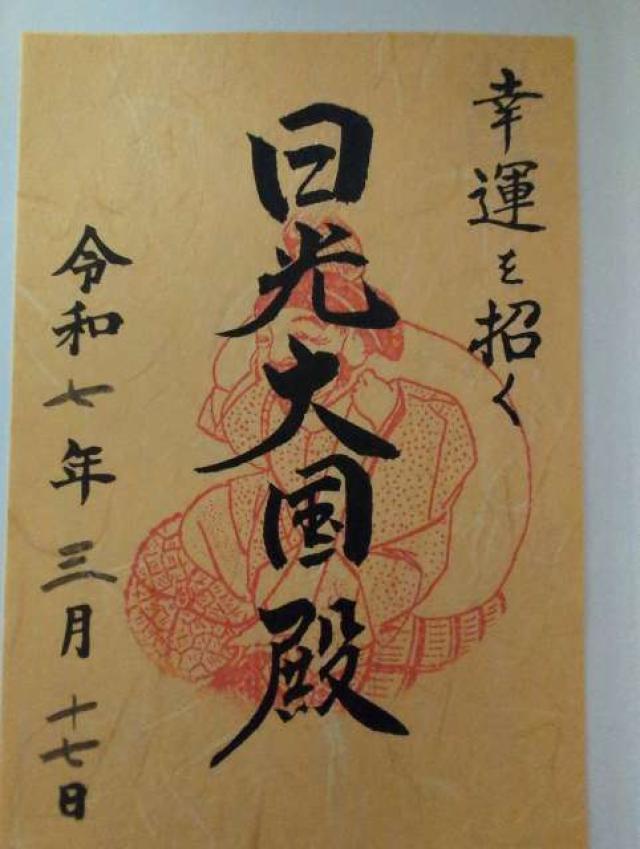 幸運を招く
日光大国殿
令和七年三月十七日